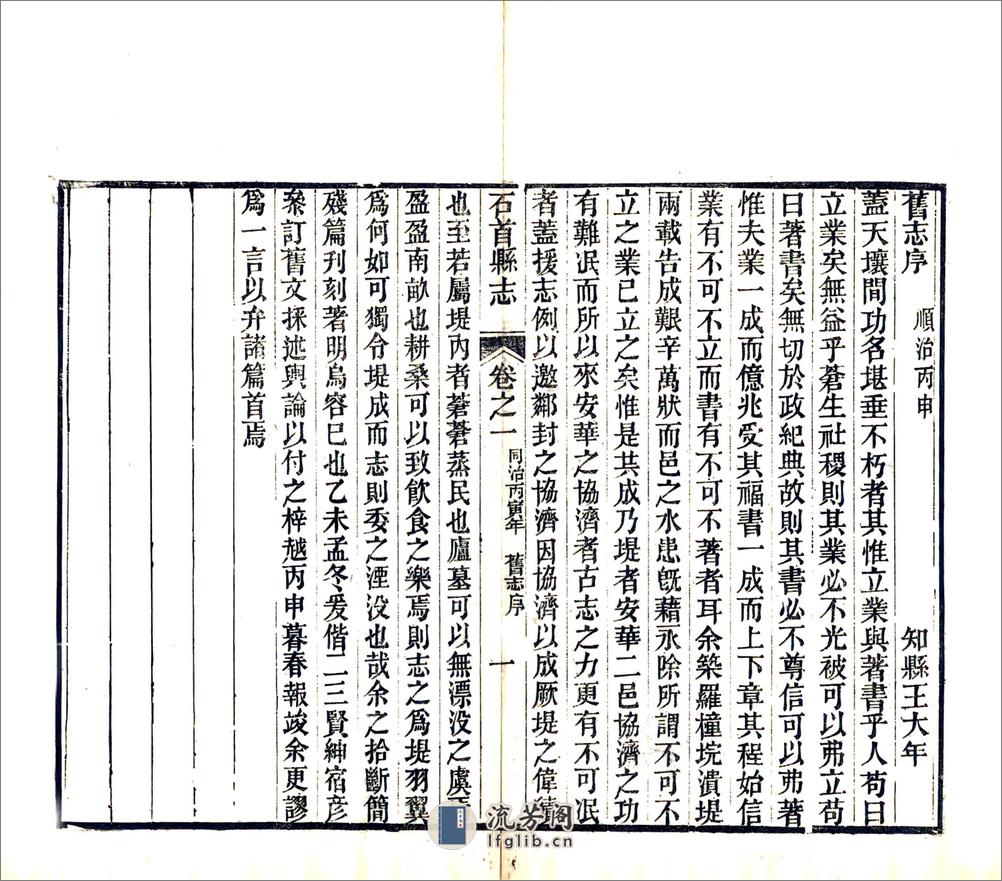 舊志序　順治丙申　知縣王大年
蓋天壤間功名堪垂不朽者其惟立業與著書乎人苟曰
立業矣無益乎蒼生社稷則其業必不光被可以弗立苟
曰著書矣無切於政紀典故則其書必不尊信可以弗著
惟夫業一成而億兆受其福書一成而上下章其程始信
業有不可不立而書有不可不著者耳余築羅橦垸潰堤
兩載告成艱辛萬狀而邑之水患旣藉永除所謂不可不
立之業已立之矣惟是共成乃堤者安華二邑協濟之功
有難泯而所以來安華之協濟者古志之力更有不可泯
者蓋援志例以邀鄰封之協濟因協濟以成厥堤之偉績
石首縣志　卷之一　同治丙寅年　舊志序　一
也至若屬堤內者蒼蒼蒸民也廬墓可以無漂没之虞焉
盈盈南畝也耕桑可以致飮食之樂焉則志之爲堤羽翼
爲何如可獨令堤成而志則委之湮没也哉余之拾斷簡
殘篇刋刻著明烏容已也乙未孟冬爰偕二三賢紳宿彥
叅訂舊文採述輿論以付之梓越丙申暮春報竣余更謬
爲一言以弁諸篇首焉
流芳阁
lfglib.com